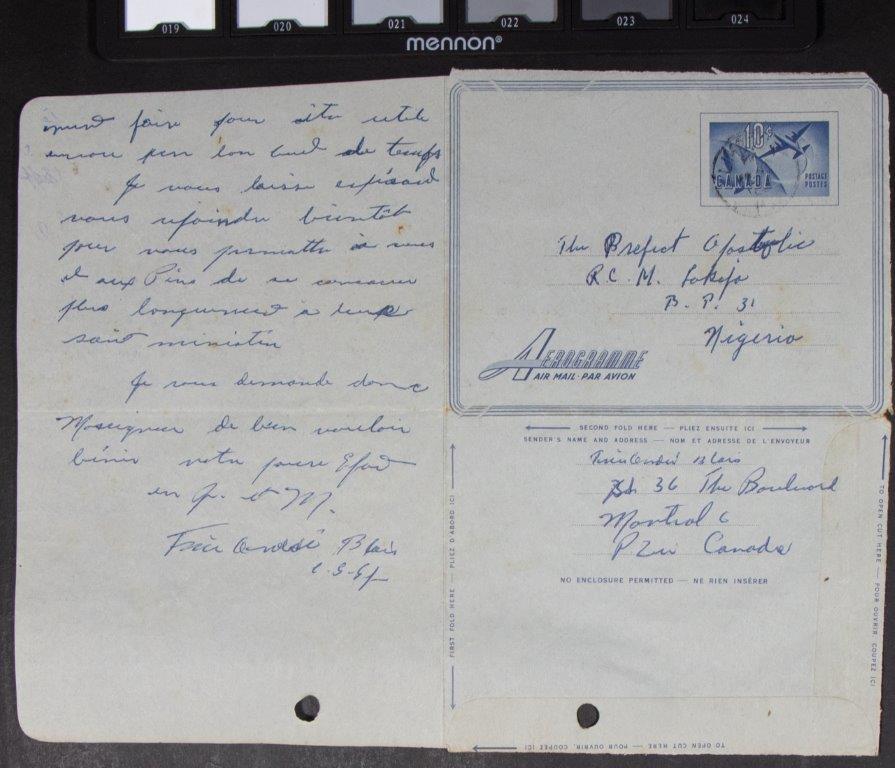 019 020 021 022 023 024
mennon®
faire pour utile
encore bon de temps
Je vous laisse espérant
vous rejoindre bientôt
pour vous permettre à vous
et aux Pères de se consacrer
plus longuement à leur
saint ministère
Je vous demande donc
Monseigneur de bien vouloir
bénir votre pauvre
en J. et M.
Frère André Blais
10¢
CANADA
POSTAGE
POSTES
The Prefect Apostolic
R.C.M. Lokoja
B. P. 31
Nigeria
AEROGRAMME
AIR MAIL · PAR AVION
SECOND FOLD HERE — PLIEZ ENSUITE ICI
SENDER'S NAME AND ADDRESS — NOM ET ADRESSE DE L'ENVOYEUR
Frère André Blais
36 The Boulevard
Montreal 6
Canada
NO ENCLOSURE PERMITTED — NE RIEN INSÉRER
FIRST FOLD HERE — PLIEZ D'ABORD ICI
TO OPEN CUT HERE — POUR OUVRIR, COUPEZ ICI
TO OPEN CUT HERE — POUR OUVRIR, COUPEZ ICI